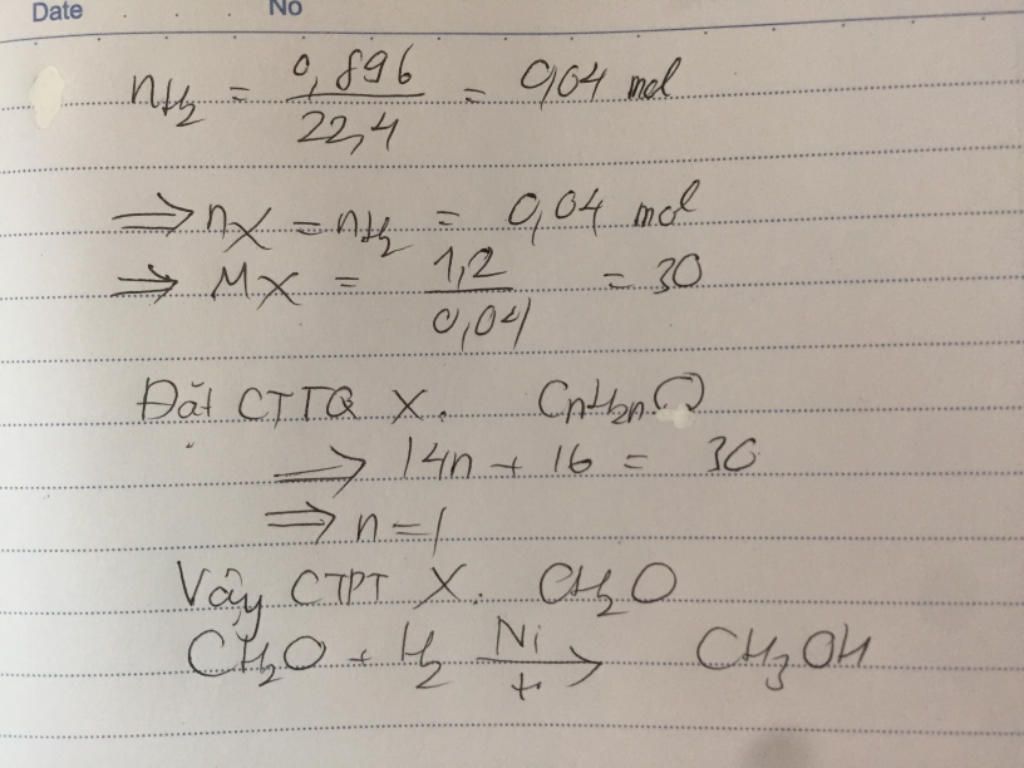 Date No
nH₂ = 0,896 / 22,4 = 0,04 mol
⇒ nX = nH₂ = 0,04 mol
⇒ MX = 1,2 / 0,04 = 30
Đặt CTTQ X. CnH2nO
⇒ 14n + 16 = 30
⇒ n = 1
Vậy CTPT X. CH₂O
CH₂O + H₂ Ni t° → CH₃OH